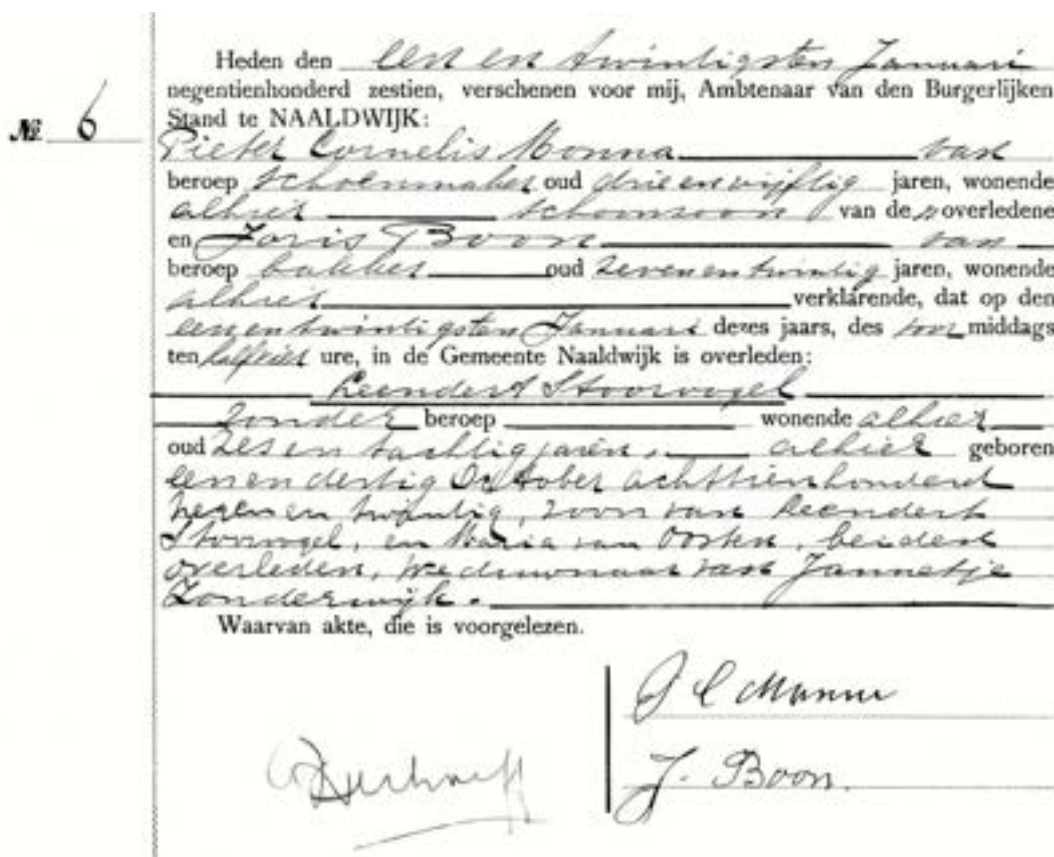 Heden den een en twintigsten Januari
negentienhonderd zestien, verschenen voor mij, Ambtenaar van den Burgerlijken
№ 6 Stand te NAALDWIJK:
Pieter Cornelis Monna van
beroep schoenmaker oud drie en vijftig jaren, wonende
alhier schoonzoon van de n overledene
en Joris Boon van
beroep bakker oud zeven en twintig jaren, wonende
alhier verklarende, dat op den
een en twintigsten Januari dezes jaars, des voor middags
ten half vier ure, in de Gemeente Naaldwijk is overleden:
Leendert Stoorvogel
zonder beroep wonende alhier
oud zes en tachtig jaren, alhier geboren
een en dertig October achttienhonderd
negen en twintig, zoon van Leendert
Stoorvogel, en Maria van Oosten, beiden
overleden, weduwnaar van Jannetje
Zonderwijk.
Waarvan akte, die is voorgelezen.
P C Monna
J. Boon.